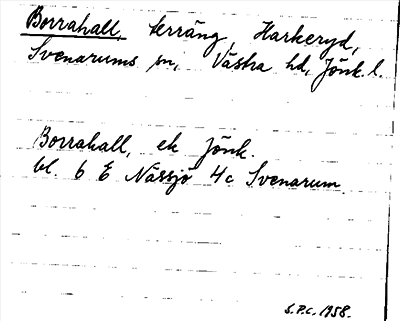 Borrahall, terräng, Harkeryd,
Svenarums sn, Västra hd, Jönk. l.
Borrahall, ek Jönk.
bl. 6 E Nässjö 4c Svenarum
S.P.C. 1958.